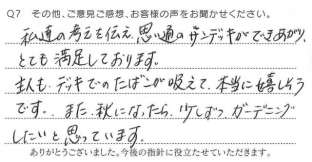 Q7 その他、ご意見ご感想、お客様の声をお聞かせください。
私達の考えを伝え、思い通りのサンデッキができあがり、
とても満足しております。
主人も、デッキでのたばこが吸えて、本当に嬉しそう
です。また、秋になったら、少しずつ、ガーデニング
したいと思っています。
ありがとうございました。今後の指針に役立たせていただきます。